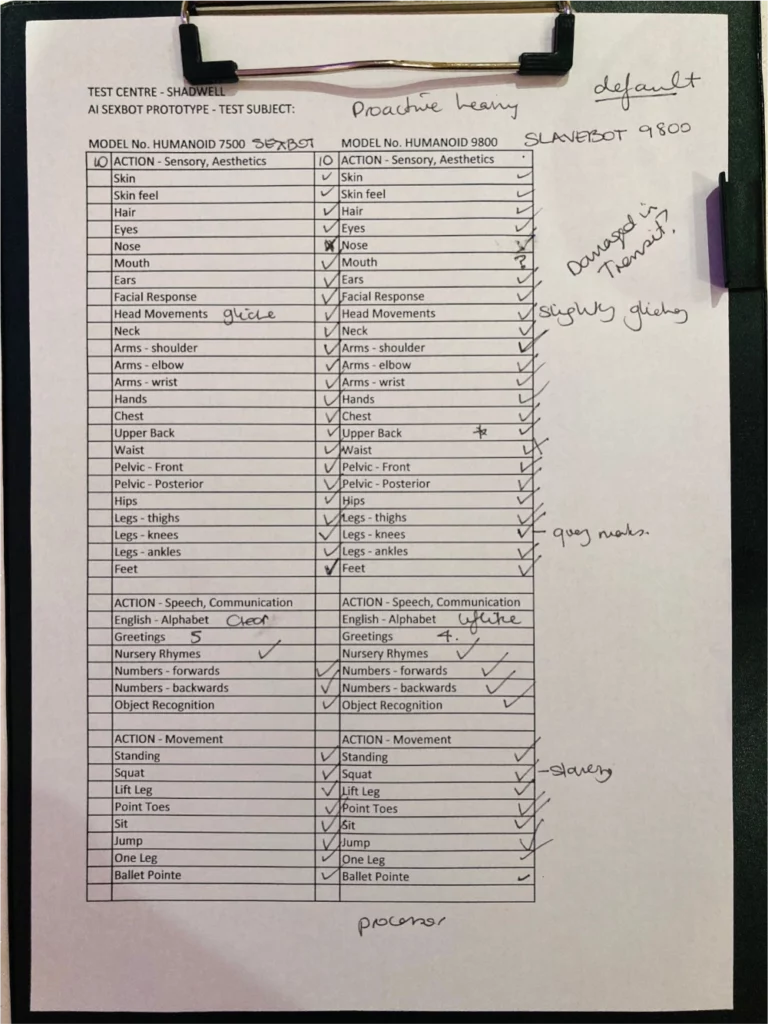 default
TEST CENTRE - SHADWELL
AI SEXBOT PROTOTYPE - TEST SUBJECT: Proactive
SLAVEBOT 9800
MODEL No. HUMANOID 7500 SEXBOT MODEL No. HUMANOID 9800
10 ACTION - Sensory, Aesthetics 10 ACTION - Sensory, Aesthetics
Skin ✓ Skin ✓
Skin feel ✓ Skin feel ✓
Hair ✓ Hair ✓
Eyes ✓ Eyes ✓
Nose Nose ✓
Damaged in
Transit?
Mouth ✓ Mouth ?
Ears ✓ Ears ✓
Facial Response ✓ Facial Response ✓
Head Movements gliche ✓ Head Movements ✓ slightly
Neck ✓ Neck ✓
Arms - shoulder ✓ Arms - shoulder ✓
Arms - elbow ✓ Arms - elbow ✓
Arms - wrist ✓ Arms - wrist ✓
Hands ✓ Hands ✓
Chest ✓ Chest ✓
Upper Back ✓ Upper Back * ✓
Waist ✓ Waist ✓
Pelvic - Front ✓ Pelvic - Front ✓
Pelvic - Posterior ✓ Pelvic - Posterior ✓
Hips ✓ Hips ✓
Legs - thighs ✓ Legs - thighs ✓
Legs - knees ✓ Legs - knees ✓ -
Legs - ankles ✓ Legs - ankles ✓
Feet ✓ Feet ✓
ACTION - Speech, Communication ACTION - Speech, Communication
English - Alphabet Clear English - Alphabet
Greetings 5 Greetings 4.
Nursery Rhymes ✓ Nursery Rhymes ✓
Numbers - forwards ✓ Numbers - forwards ✓
Numbers - backwards ✓ Numbers - backwards ✓
Object Recognition ✓ Object Recognition ✓
ACTION - Movement ACTION - Movement
Standing ✓ Standing ✓
Squat ✓ Squat ✓ -
Lift Leg ✓ Lift Leg ✓
Point Toes ✓ Point Toes ✓
Sit ✓ Sit ✓
Jump ✓ Jump ✓
One Leg ✓ One Leg ✓
Ballet Pointe ✓ Ballet Pointe ✓
processor